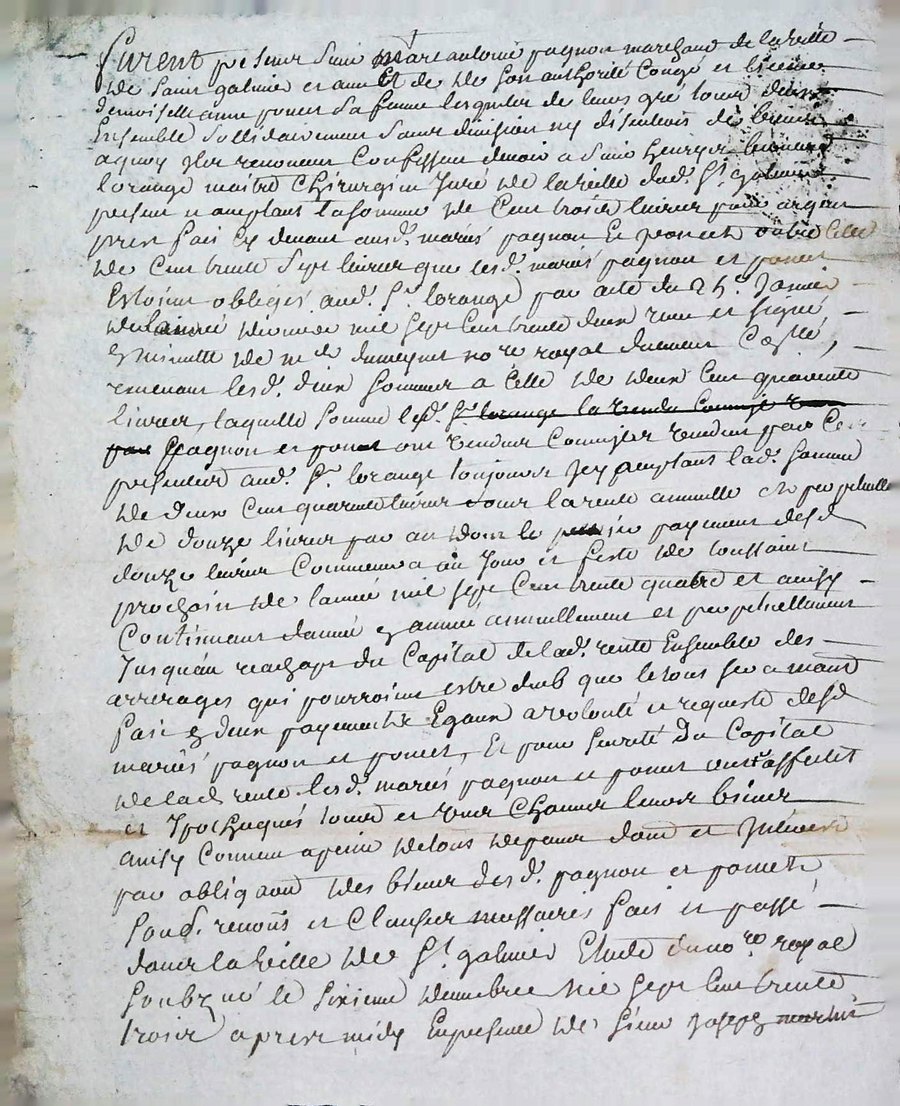 furent presens sieur marc antoine pagnon marchand de la ville
de saint galmier et de de son authorité congé et licence
demoiselle anne ponet sa femme lesquels de leurs gré tous deux
Ensemble sollidairement sans division ny discution de biens
a quoy ils renoncent Confessent devoir a sieur henry bernard
lorange maitre Chirurgien Juré de la ville dud. St. galmier
present et acceptant la somme de Cent trois livres pour argent
prest fait cy devant ausd. mariés pagnon et ponet outre celle
de Cent trente sept livres que lesd. mariés pagnon et ponet
Estoient obligés aud. Sr. lorange par acte du 25e. Janvier
de lannée mil sept Cent trente deux receu et signé
Es minutte de me no re royal
revenant lesd. deux sommes a Celle de deux Cent quarante
livres, laquelle somme lesd. Sr. lorange la
pagnon et ponet ont
presentes aud. Sr. lorange toujours acceptant lad. somme
de deux Cent quarante livres sous la rente annuelle et perpetuelle
de douze livres par an dont le payement desd.
douze livres Commencera au Jour et feste de toussaint
prochain de lannée mil sept Cent trente quatre et ainsy
Continuant dannée En année annuellement et perpetuellement
Jusquau reachapt du Capital de lad. rente Ensemble des
arrerages qui pourroient estre deub que le tous sera
fait En deux payements Egaux a volonté et requeste desd.
mariés pagnon et ponet, Et pour seureté du Capital
de lad. rente lesd. mariés pagnon et ponet ont affectés
et Ypothequés tous et Uns Chacuns leurs biens
ainsy Comme a peine de tous depens dom. et Interest
par obligaon des biens desd. pagnon et ponet
soud. renons et Clauses fait et passé
dans la ville de St. galmier Etude du no. re royal
soubzné le sixieme decembre mil sept Cent trente
trois apres midy En presence de sieur Joseph martin